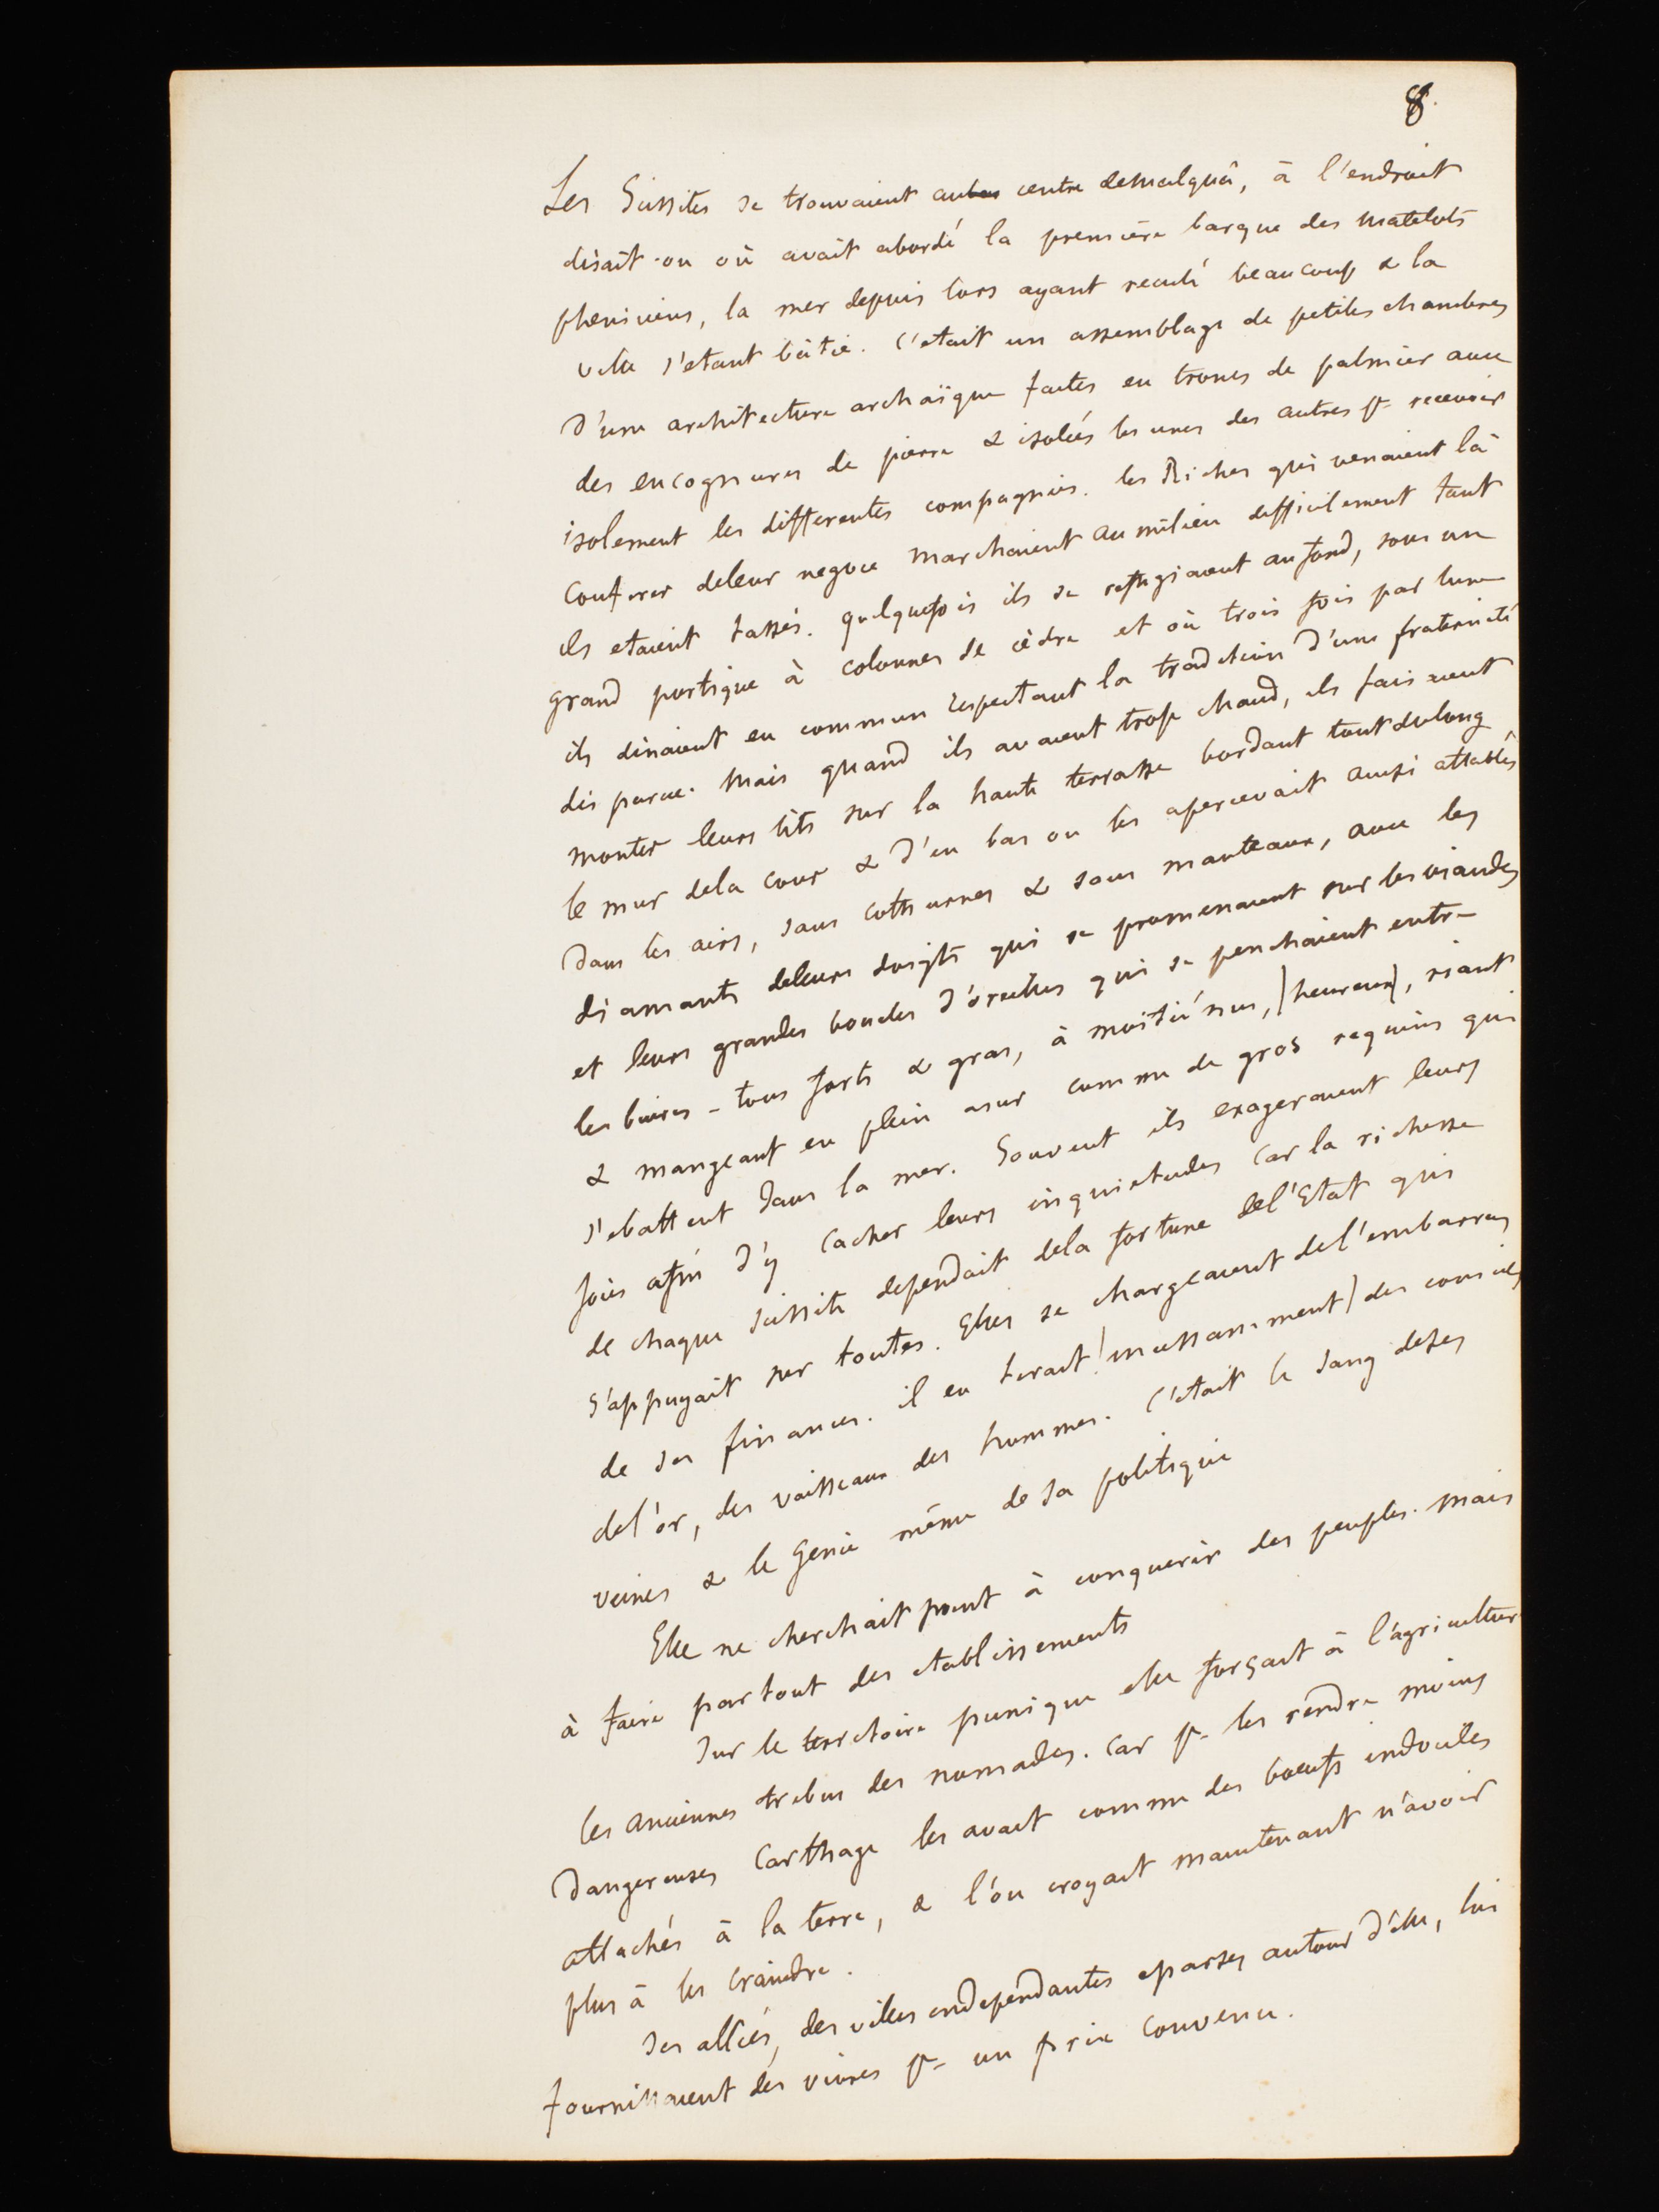 8.
Les Sissites se trouvaient au centre de Malquâ, à l'endroit
disait-on où avait abordé la première barque des matelots
pheniciens, la mer depuis lors ayant reculé beaucoup & la
ville s'etant bâtie. C'etait un assemblage de petites chambres
d'une architecture archaïque faites en troncs de palmier avec
des encognures de pierre & isolées les unes des autres pr recevoir
isolement les differentes compagnies. les Riches qui venaient là
conferer de leur negoce marchaient au milieu difficilement tant
ils etaient tassés. quelquefois ils se refugiaient au fond, sous un
grand portique à colonnes de cèdre et où trois fois par lune
ils dinaient en commun respectant la tradition d'une fraternité
disparue. Mais quand ils avaient trop chaud, ils faisaient
monter leurs lits sur la haute terrasse bordant tout du long
le mur de la cour & d'en bas on les apercevait ainsi attablés
dans les airs, sans cothurnes & sans manteaux, avec les
diamants de leurs doigts qui se promenaient sur les viandes
et leurs grandes boucles d'oreilles qui se penchaient entre
les buires - tous forts & gras, à moitié nus, [heureux], riant
& mangeant en plein asur comme de gros requins qui
s'ebattent dans la mer. Souvent ils exageraient leurs
joies afin d'y cacher leurs inquietudes car la richesse
de chaque sissite dependait de la fortune de l'Etat qui
s'appuyait sur toutes. Elles se chargeaient de l'embarras
de ses finances. il en tirait [incessamment] des conseils
de l'or, des vaisseaux des hommes. C'etait le sang de ses
veines & le genie même de sa politique
Elle ne cherchait point à conquerir des peuples. mais
à faire partout des etablissements
Sur le territoire punique elle forçait à l'agriculture
les anciennes tribus des nomades. Car pr les rendre moins
dangereuses Carthage les avait comme des boeufs indociles
attachés à la terre, & l'on croyait maintenant n'avoir
plus à les craindre.
Ses alliés, des villes independantes eparses autour d'elle, lui
fournissaient des vivres pr un prix convenu.